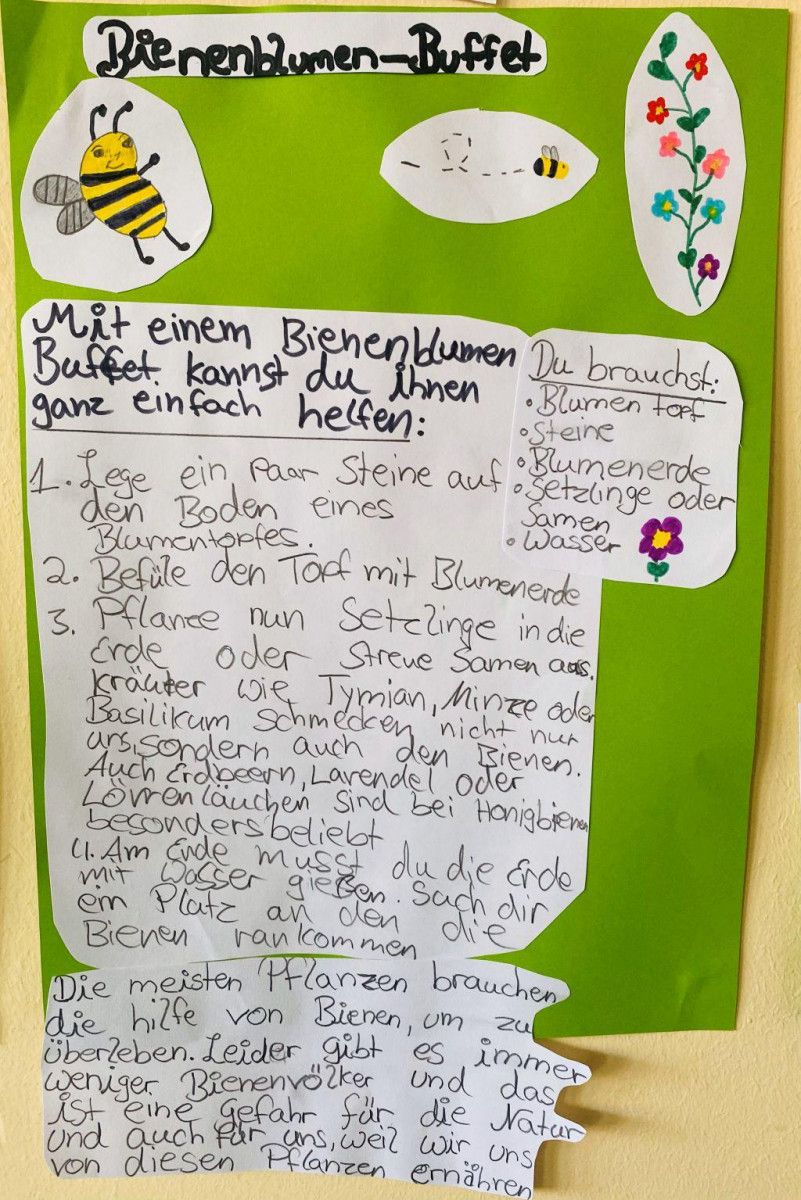 Bienenblumen-Buffet
Mit einem Bienenblumen
Buffet kannst du ihnen
ganz einfach helfen:
1. Lege ein paar Steine auf
den Boden eines
Blumentopfes.
2. Befüle den Topf mit Blumenerde
3. Pflanze nun Setzlinge in die
Erde oder Streue Samen aus.
Kräuter wie Tymian, Minze oder
Basilikum schmecken nicht nur
uns, sondern auch den Bienen.
Auch Erdbeern, Lavendel oder
Löwenläuchen sind bei Honigbienen
besonders beliebt
4. Am Ende musst du die Erde
mit Wasser gießen. Such dir
ein Platz an den die
Bienen rankommen
Du brauchst:
• Blumentopf
• Steine
• Blumenerde
• Setzlinge oder
Samen
• Wasser
Die meisten Pflanzen brauchen
die hilfe von Bienen, um zu
überleben. Leider gibt es immer
weniger Bienenvölker und das
ist eine Gefahr für die Natur
und auch für uns, weil wir uns
von diesen Pflanzen ernähren